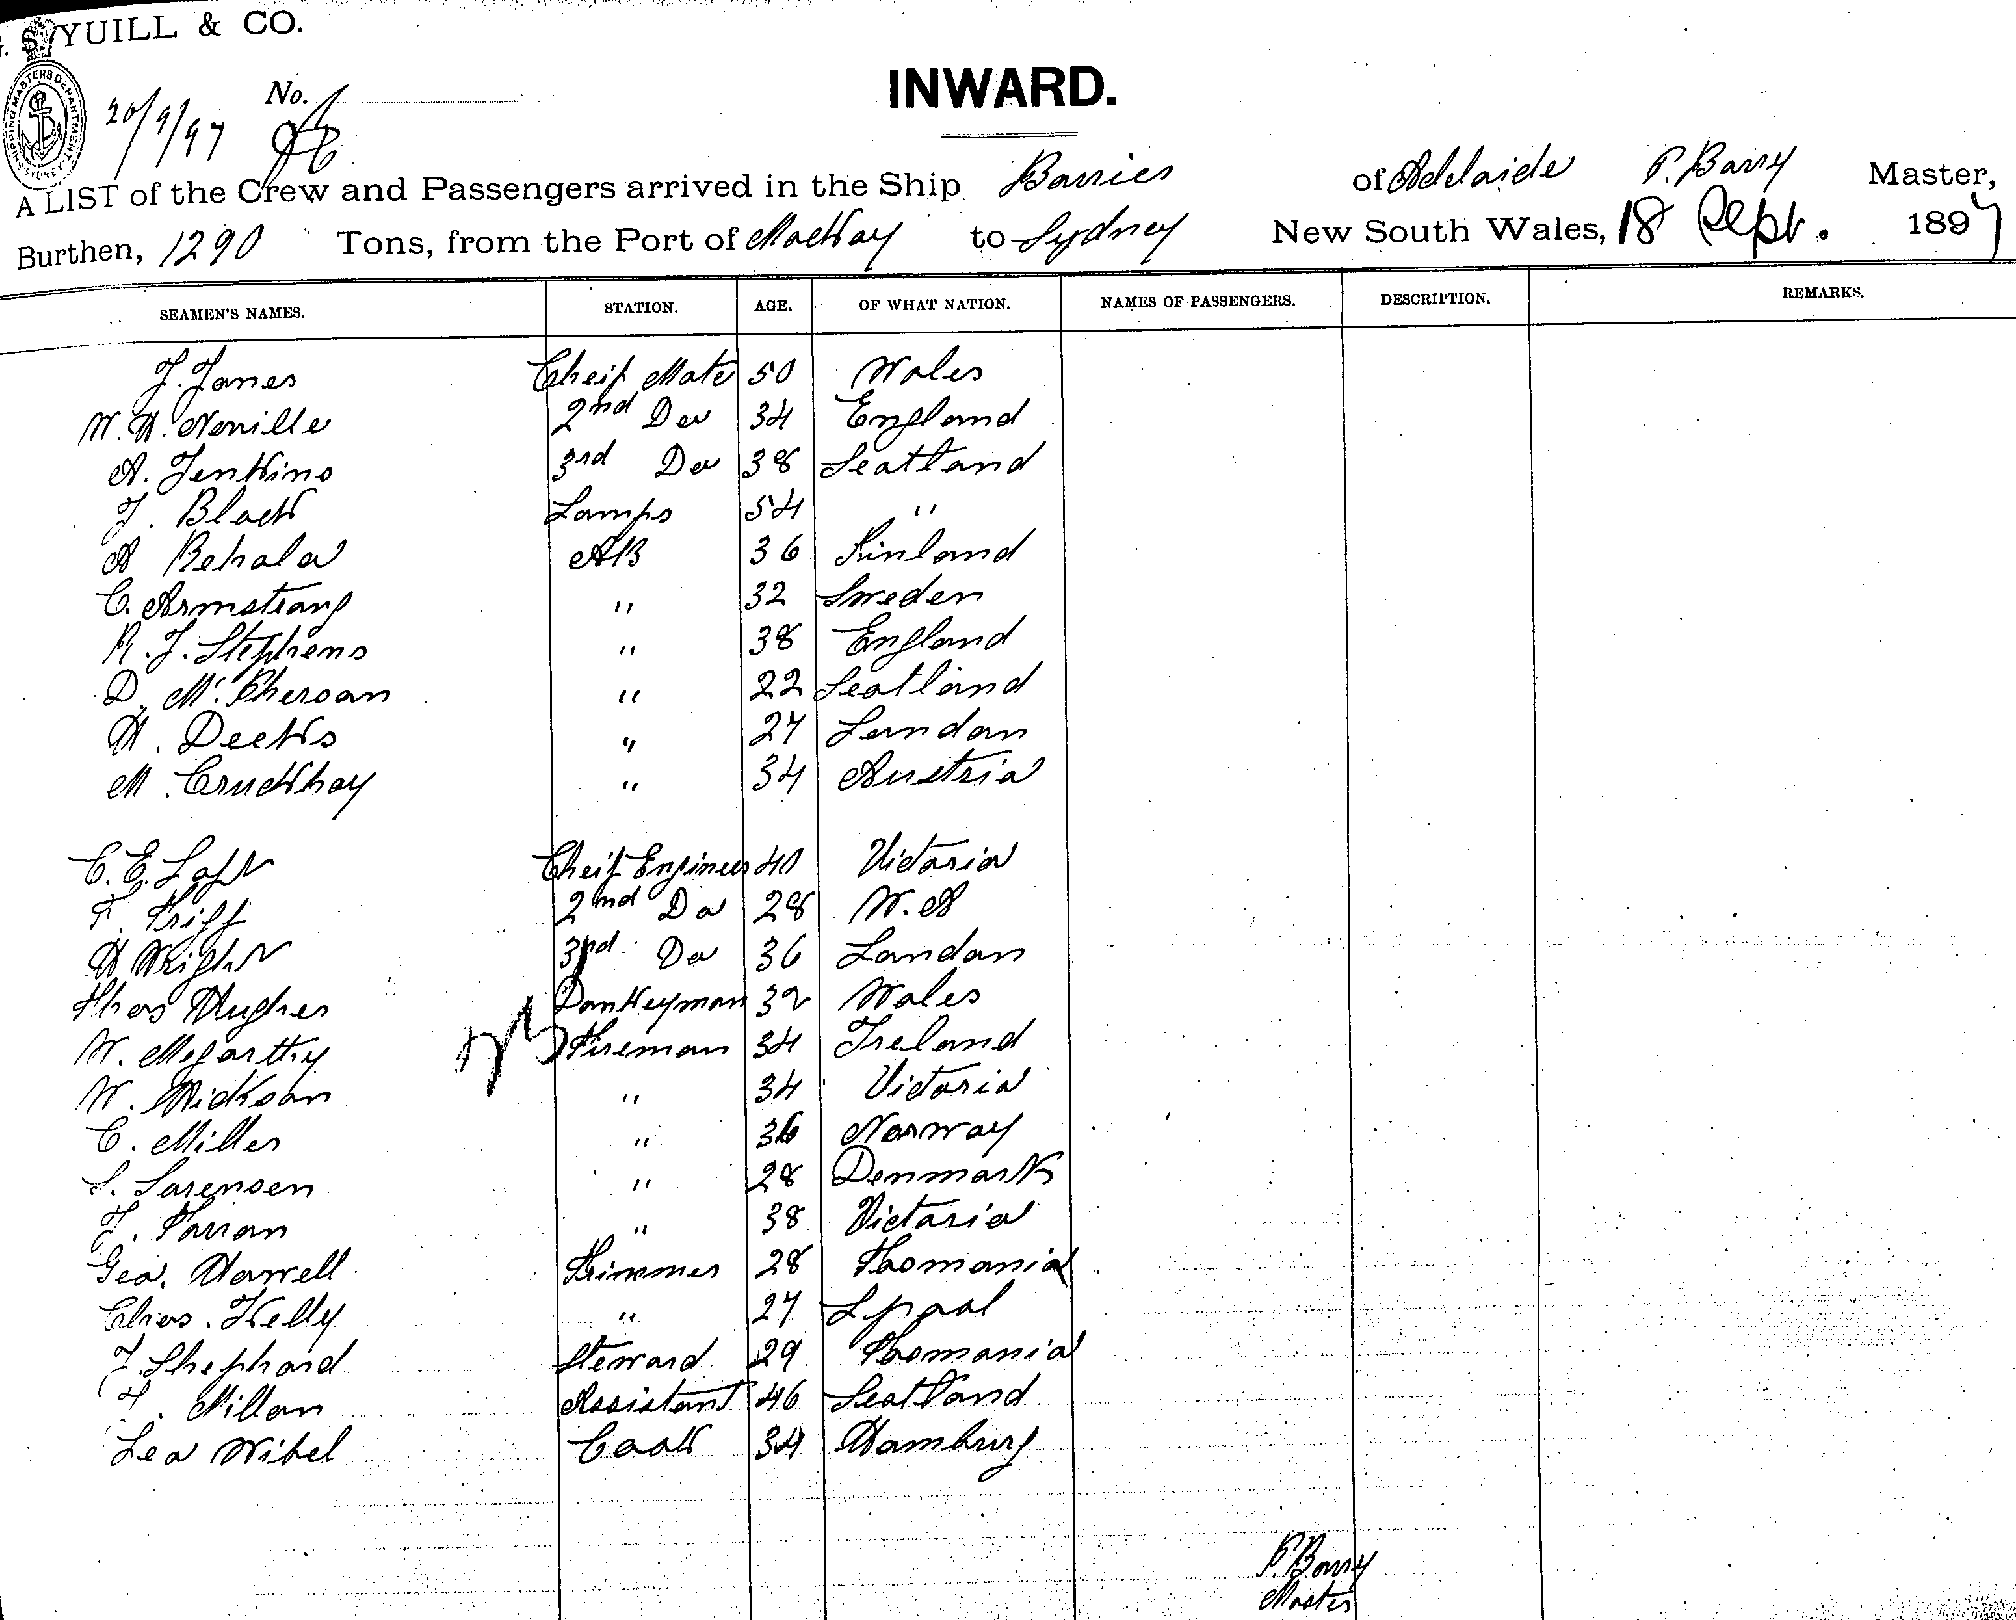 G. S. YUILL & CO.
SHIPPING MASTERS DEPARTMENT SYDNEY
20/9/97 No.
INWARD.
A LIST of the Crew and Passengers arrived in the Ship of Adelaide P. Barry Master,
Burthen, 1290 Tons, from the Port of Mackay to Sydney New South Wales, 18 Sept. 1897
SEAMEN'S NAMES. STATION. AGE. OF WHAT NATION. NAMES OF PASSENGERS. DESCRIPTION. REMARKS.
J. Jones Cheif Mate 50 Wales
W. H. Neville 2nd Do 34 England
A. Jenkins 3rd Do 38 Scotland
J. Black Lamps 54 "
A Rehala AB 36 Finland
C. Armstrong " 32 Sweden
R. J. Stephens " 38 England
D. McPherson " 22 Scotland
H. Deeks " 27 London
M. " 34 Austria
C. E. Cheif Engineer 40 Victoria
F. 2nd Do 28 W. A
H Wright 3rd Do 36 London
Thos Hughes Donkeyman 32 Wales
W. Fireman 34 Ireland
W. Hickson " 34 Victoria
C. Miller " 36 Norway
S. Sorensen " 28 Denmark
J. " 38 Victoria
Geo. Trimmer 28 Tasmania
Chas. Kelly " 27 Lpool
J Shephard Steward 29 Tasmania
Assistant 46 Scotland
Leo Wibel Cook 34 Hamburg
P. Barry
Master